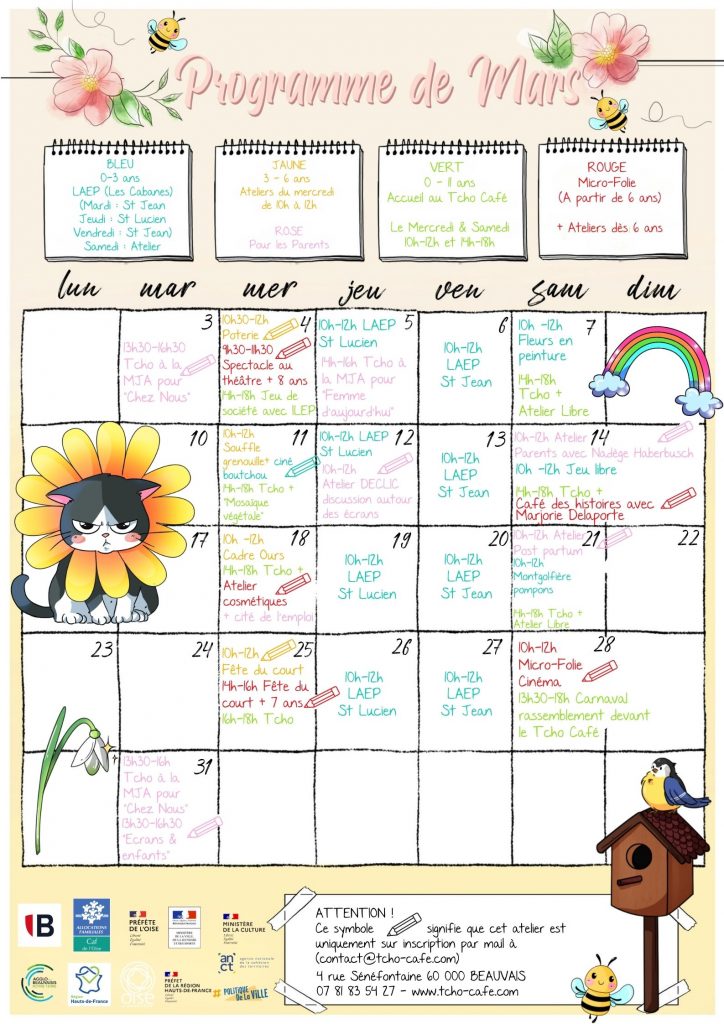 Programme de Mars
BLEU
0-3 ans
LAEP (Les Cabanes)
(Mardi : St Jean
Jeudi : St Lucien
Vendredi : St Jean)
Samedi : Atelier
JAUNE
3 - 6 ans
Ateliers du mercredi
de 10h à 12h
ROSE
Pour les Parents
VERT
0 - 11 ans
Accueil au Tcho Café
Le Mercredi & Samedi
10h-12h et 14h-18h
ROUGE
Micro-Folie
(A partir de 6 ans)
+ Ateliers dès 6 ans
lun mar mer jeu ven sam dim
3
13h30-16h30
Tcho à la
MJA pour
"Chez Nous"
4
10h30-12h
Poterie
9h30-11h30
Spectacle au
théâtre + 8 ans
14h-18h Jeu de
société avec ILEP
5
10h-12h LAEP
St Lucien
14h-16h Tcho
à la MJA pour
"Femme
d'aujourd'hui"
6
10h-12h
LAEP
St Jean
7
10h -12h
Fleurs en
peinture
14h-18h
Tcho +
Atelier Libre
10
11
10h-12h
Souffle
grenouille+ ciné
boutchou
14h-18h Tcho +
"Mosaïque
végétale"
12
10h-12h LAEP
St Lucien
10h-12h
Atelier DECLIC
discussion autour
des écrans
13
10h-12h
LAEP
St Jean
14
10h-12h Atelier
Parents avec Nadège Haberbusch
10h -12h Jeu libre
14h-18h Tcho +
Café des histoires avec
Marjorie Delaporte
17
18
10h -12h
Cadre Ours
14h-18h Tcho +
Atelier
cosmétiques
+ cité de l'emploi
19
10h-12h
LAEP
St Lucien
20
10h-12h
LAEP
St Jean
21
10h-12h Atelier
Post partum
10h-12h
Montgolfière
pompons
14h-18h Tcho +
Atelier Libre
22
23
24
25
10h-12h
Fête du court
14h-16h Fête du
court + 7 ans
16h-18h Tcho
26
10h-12h
LAEP
St Lucien
27
10h-12h
LAEP
St Jean
28
10h-12h
Micro-Folie
Cinéma
13h30-18h Carnaval
rassemblement devant
le Tcho Café
31
13h30-16h
Tcho à la
MJA pour
"Chez Nous"
13h30-16h30
"Ecrans &
enfants"
B
ALLOCATIONS
FAMILIALES
Caf
de l'Oise
PRÉFÈTE
DE L'OISE
Liberté
Égalité
Fraternité
MINISTÈRE
DE LA VILLE
MINISTÈRE
DE LA CULTURE
Liberté
Égalité
Fraternité
AGGLO
BEAUVAISIS
Région
Hauts-de-France
OISE
PRÉFET
DE LA RÉGION
HAUTS-DE-FRANCE
Liberté
Égalité
Fraternité
anct
agence nationale
de la cohésion
des territoires
#POLITIQUE
De La VILLE
ATTENTION !
Ce symbole signifie que cet atelier est
uniquement sur inscription par mail à
(contact@tcho-cafe.com)
4 rue Sénéfontaine 60 000 BEAUVAIS
07 81 83 54 27 - www.tcho-cafe.com